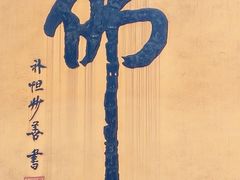 佛
補怛妙善書